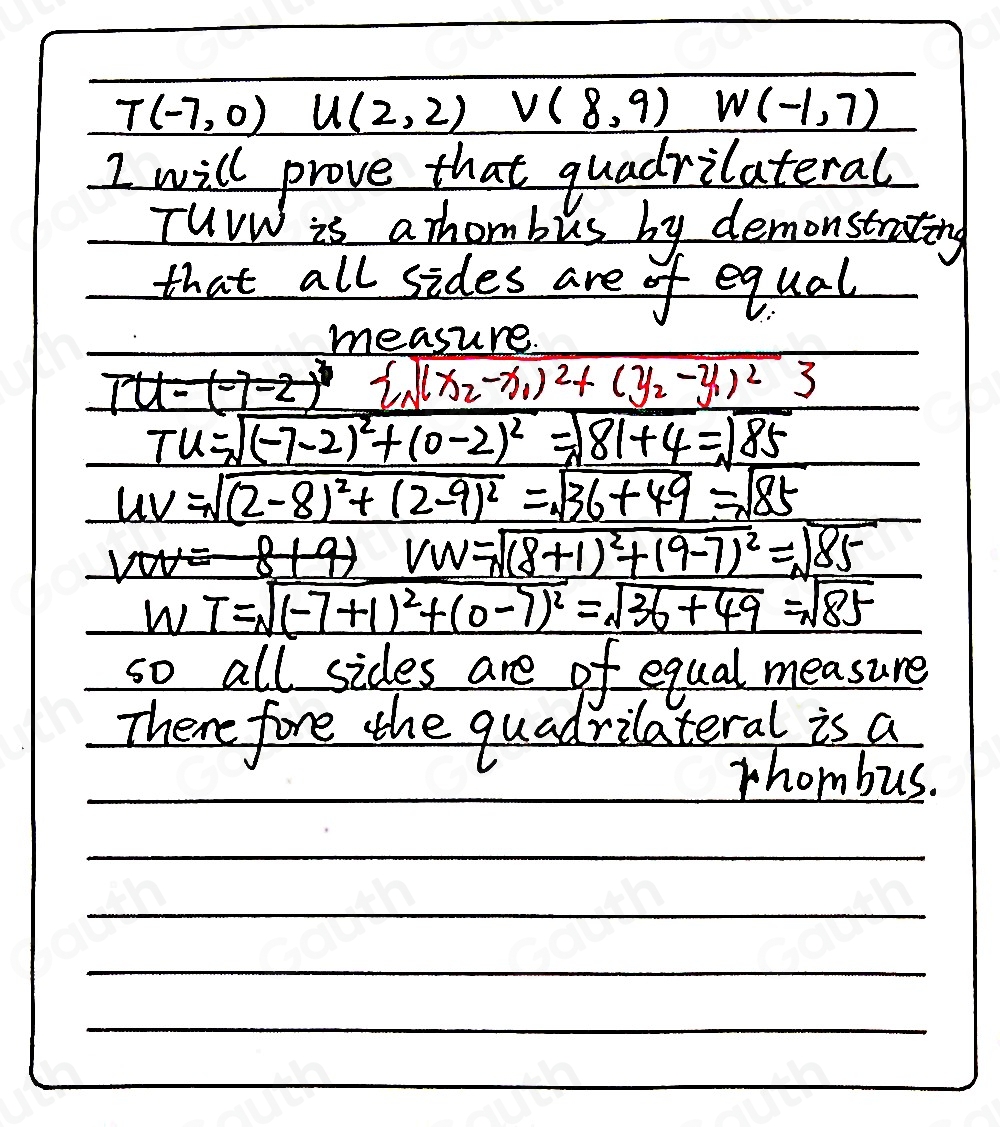 T(-7,0) U(2,2) V(8,9) W(-1,7)
I will prove that quadrilateral
TUVW is a rhombus by demonstrating
that all sides are of equal
measure.
TU=(-7-2)² {√(x₂-x₁)²+(y₂-y₁)²}
TU=√(-7-2)²+(0-2)² =√81+4=√85
UV=√(2-8)²+(2-9)² =√36+49 =√85
VW= 8+9) VW=√(8+1)²+(9-7)² =√85
WT=√(-7+1)²+(0-7)² =√36+49 =√85
so all sides are of equal measure
Therefore the quadrilateral is a
rhombus.